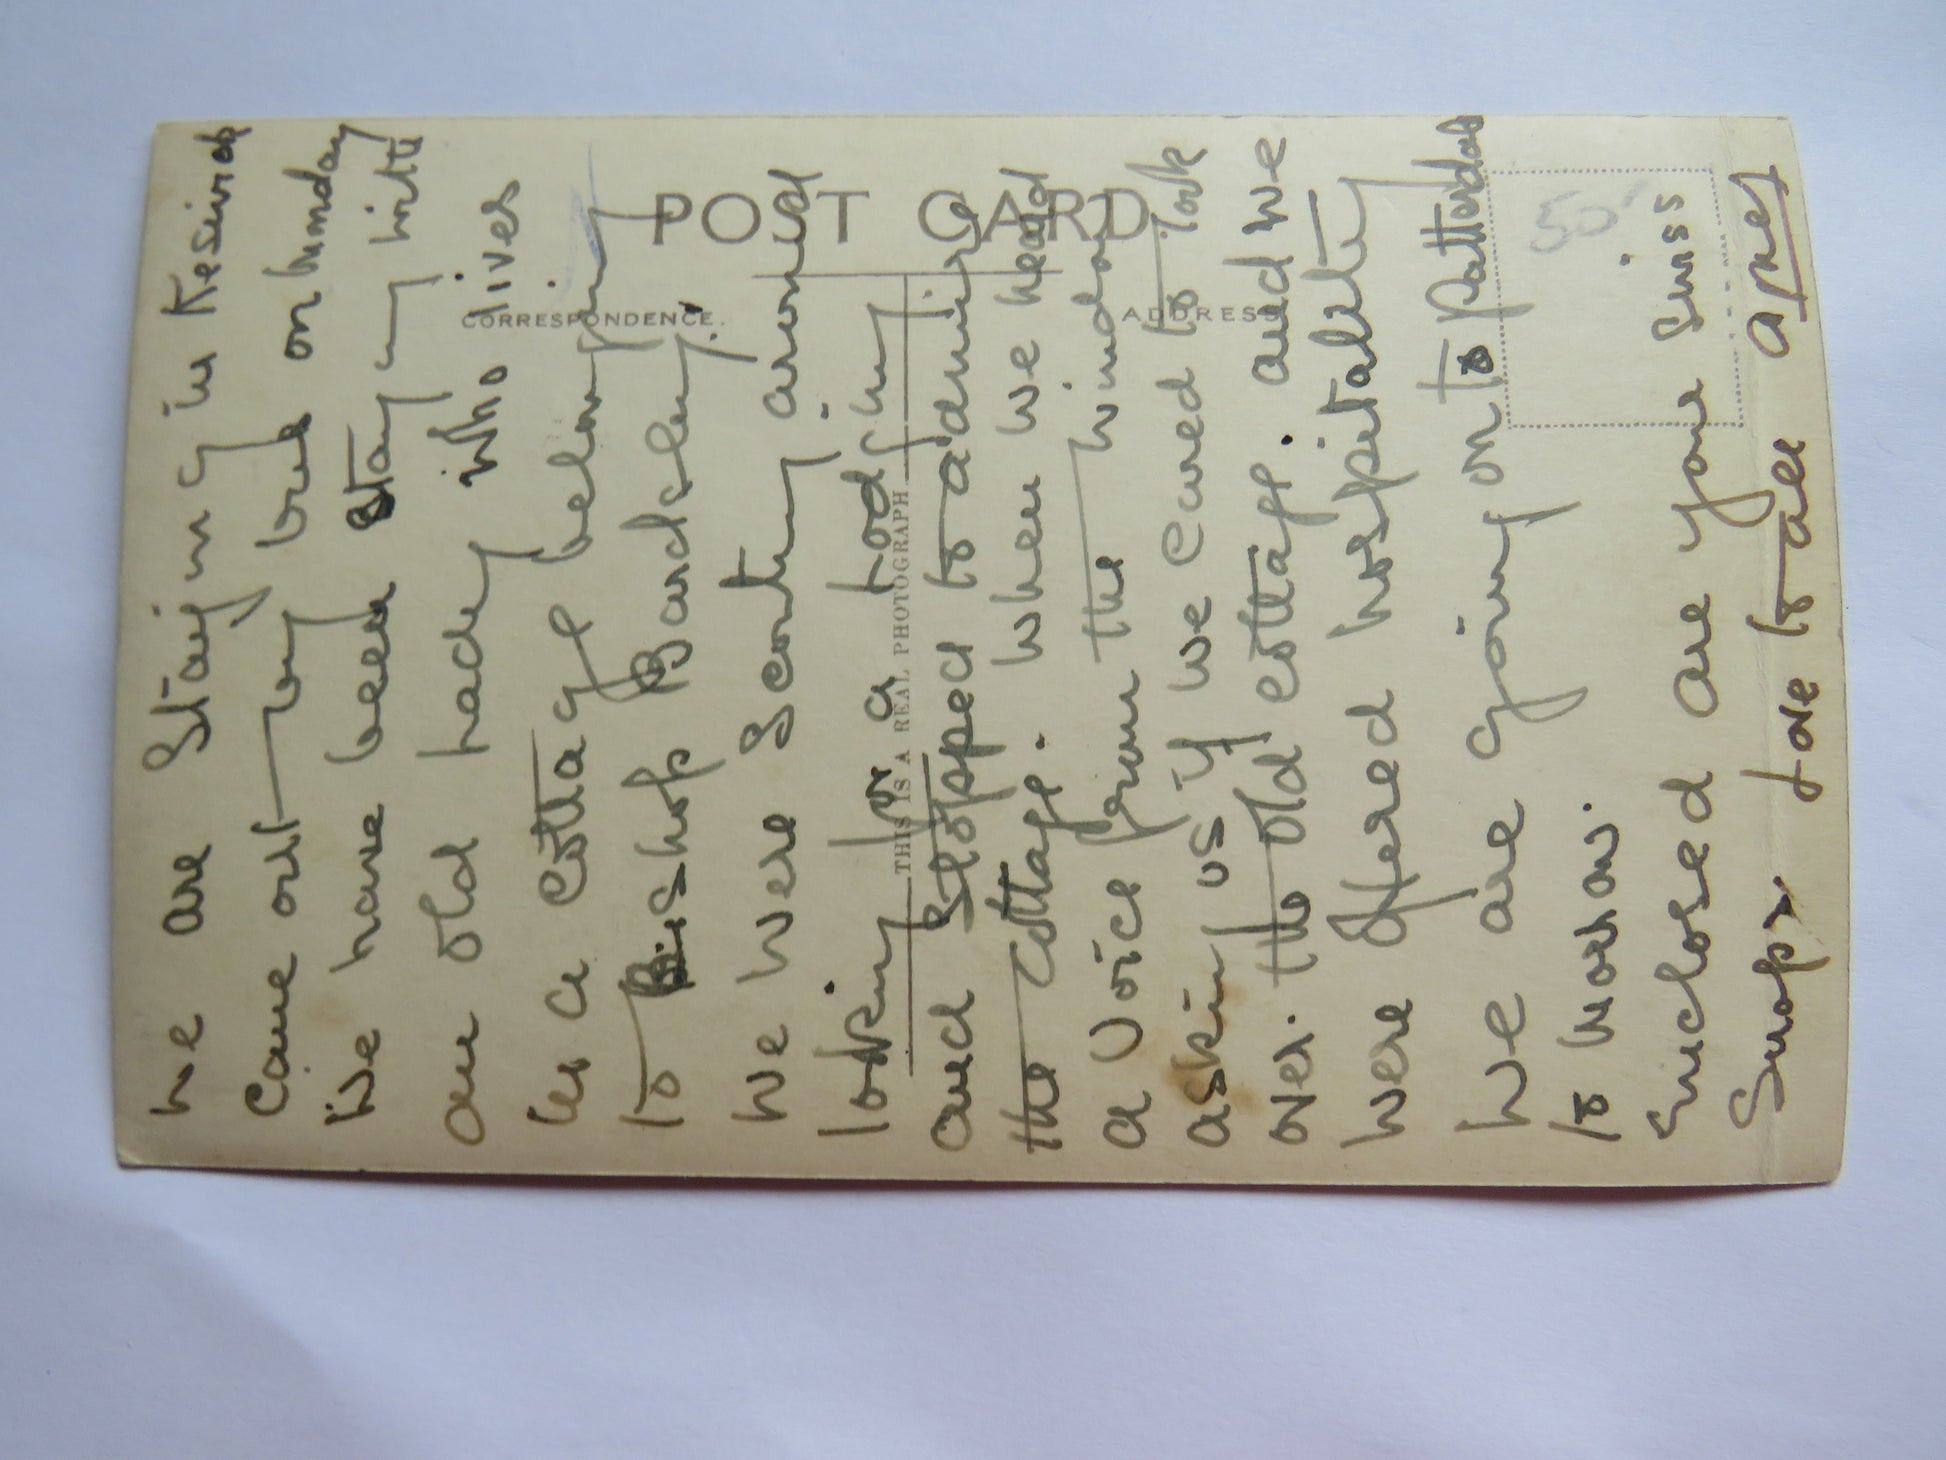 We are Staying in Keswick
Came out by bus on Sunday
We have been Staying with
an old Lady who lives
in a Cottage belonging
to Bishop Bardsley.
We were Scouting around
looking for a lodging
and Stopped to admire
the Cottage. When we heard
a Voice from the window
asking us if we cared to look
over the old cottage. and we
were Offered hospitality
We are going on to Patterdale
to morrow.
Enclosed are your Swiss
Snaps Love to all
POST CARD
CORRESPONDENCE.
ADDRESS
THIS IS A REAL PHOTOGRAPH
50